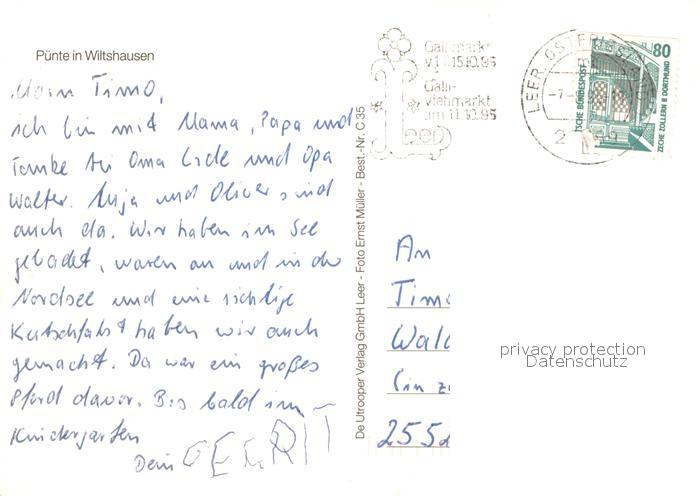 Pünte in Wiltshausen
Moin Timo,
ich bin mit Mama, Papa und
Tomke bei Oma Lide und Opa
Walter. Anja und Oliver sind
auch da. Wir haben im See
gebadet, waren an und in der
Nordsee und eine richtige
Kutschfahrt haben wir auch
gemacht. Da war ein großes
Pferd davor. Bis bald im
Kindergarten
Dein GERRIT
De Utrooper Verlag GmbH Leer - Foto Ernst Müller - Best.-Nr. C 35
Gallimarkt
v. 11.-15.10.95
Galli-
viehmarkt
am 11.10.95
Leer
LEER, OSTFRIESL
-7.
2
80
DEUTSCHE BUNDESPOST
ZECHE ZOLLERN II DORTMUND
An
Timo
Wald
(in z
255
privacy protection
Datenschutz